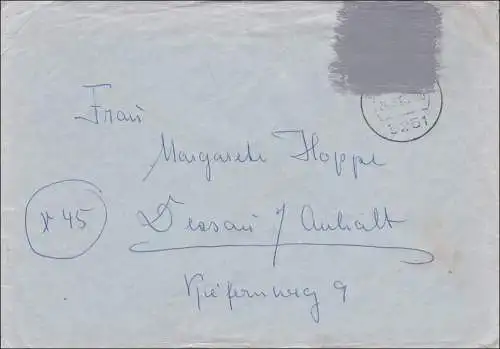 Frau
Margarete Hoppe
45
Dessau / Anhalt
Kiefernweg 9